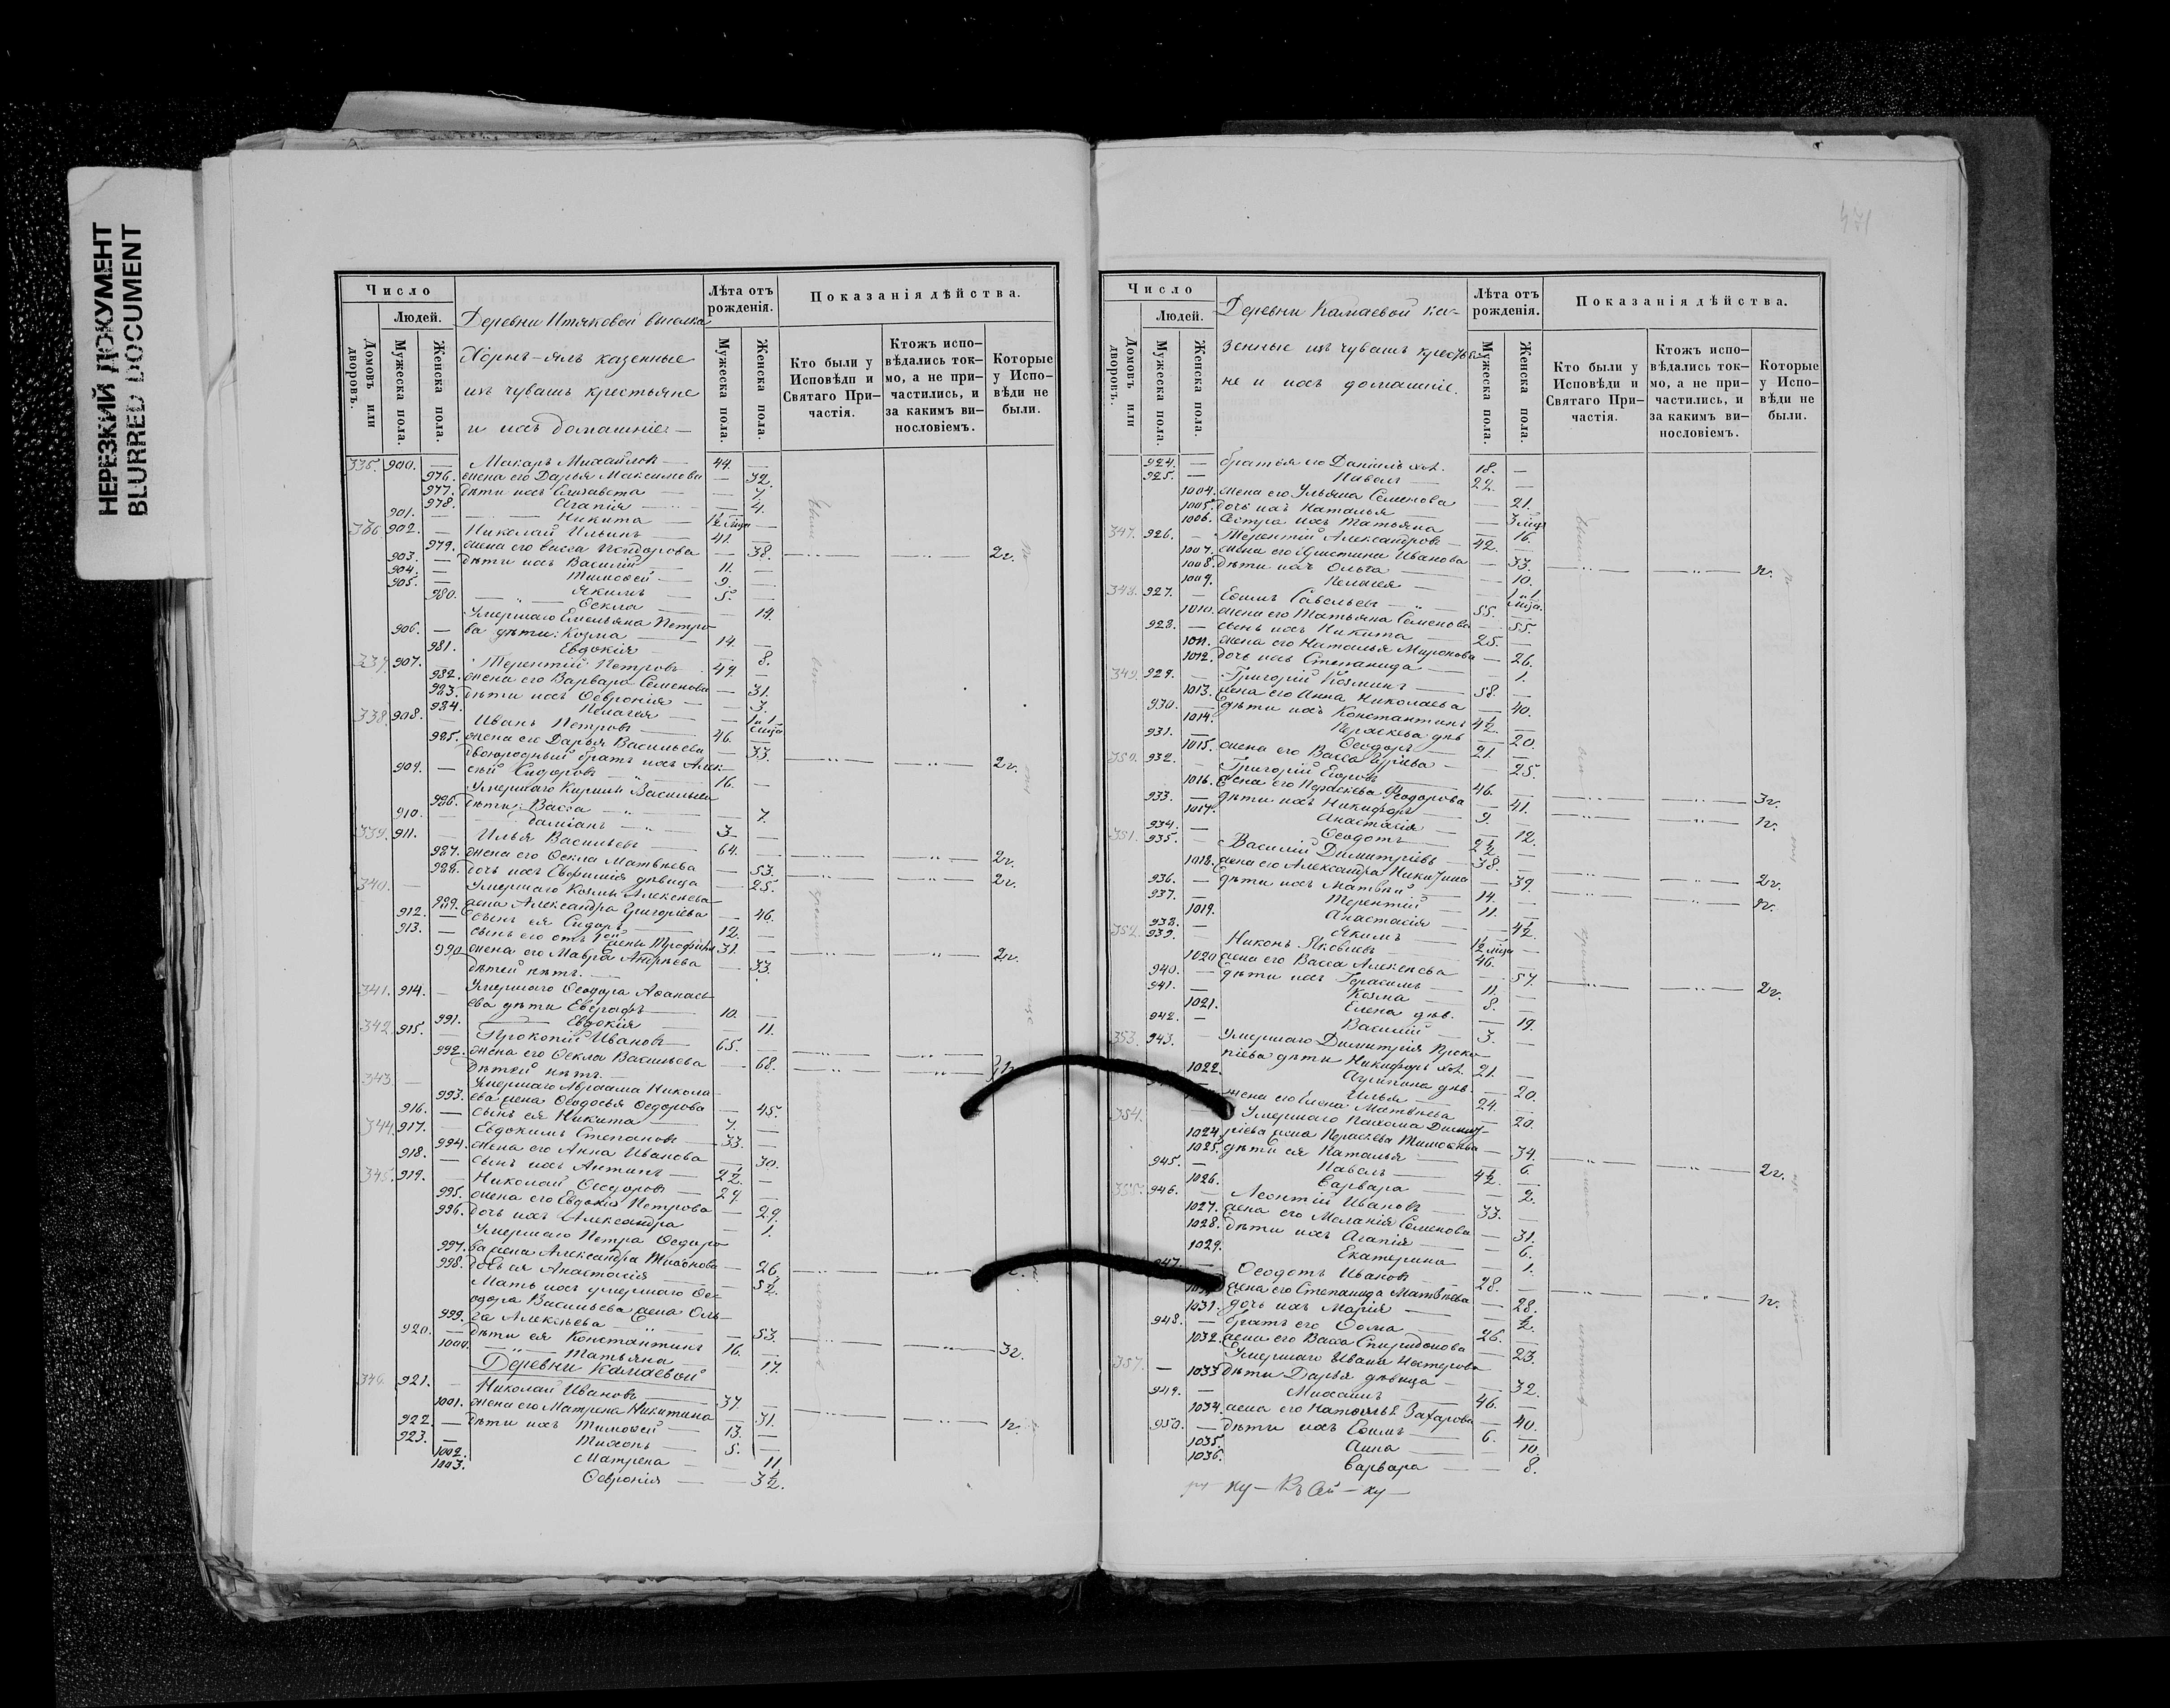 НЕРЕЗКИЙ ДОКУМЕНТ
BLURRED DOCUMENT
Число
Людей.
Домовъ или дворовъ.
Мужеска пола.
Женска пола.
Деревни Итяковой выселка
Хорнъ-ялъ казенные
изъ чувашъ крестьяне
и ихъ домашніе
Лѣта отъ рожденія.
Мужеска пола.
Женска пола.
Показанія дѣйства.
Кто были у Исповѣди и Святаго Причастія.
Ктожъ исповѣдались токмо, а не причастились, и за какимъ винословіемъ.
Которые у Исповѣди не были.
335. 900. — Макаръ Михайловъ — 44. —
976. жена его Дарья Максимова — 32.
977. дѣти ихъ Елизавета — 7.
978. Агапія — 4.
901. — Никита — 1/2 мѣця —
336. 902. — Николай Ильинъ — 41. —
979. жена его Васса — 38. 2г.
903. — дѣти ихъ Василій — 11. —
904. — Тимоѳей — 9. —
905. — Якимъ — 5. —
980. Ѳекла — 14.
Умершаго Емельяна Петро-
906. — ва дѣти: Козма — 14. —
981. Евдокія — 8.
337. 907. — Терентій Петровъ 49. —
982. жена его Варвара Семенова — 31.
983. дѣти ихъ Ѳевронія — 3.
984. Пелагея — 1 и 1 мѣця
338. 908. — Иванъ Петровъ 46. —
985. жена его Дарья Васильева — 33.
двоюродный братъ ихъ Алек- 2г.
909. — сѣй Сидоровъ — 16. —
Умершаго Кирила Васильева
986. дѣти: Васса — 7.
910. — Даміанъ — 3 —
339. 911. — Илья Васильевъ 64. —
987. жена его Ѳекла Матвѣева — 53. 2г.
988. дочь ихъ Евфимія дѣвица — 25. 2г.
340. — Умершаго Козмы Алексѣева
989. жена Александра Григоріева — 46.
912. — сынъ ея Сидоръ — 12. —
913. — сынъ его отъ 1ой жены Трофимъ 31. —
990. жена его Мавра Андреева — 33. 2г.
дѣтей нѣтъ. —
341. 914. — Умершаго Ѳеодора Аѳанась-
ева дѣти Евграфъ — 10. —
991. Евдокія — 11.
342. 915. — Прокопій Ивановъ 65. —
992. жена его Ѳекла Васильева — 68.
дѣтей нѣтъ. —
343. — Умершаго Авраама Никола-
993. ева жена Ѳеодосья Ѳедорова — 45.
916. — сынъ ея Никита — 7. —
344. 917. — Евдокимъ Степановъ 33. —
994. жена его Анна Иванова — 30.
918. — сынъ ихъ Антипъ — 2 1/2. —
345. 919. — Николай Ѳеодоровъ 29. —
995. жена его Евдокія Петрова — 29.
996. дочь ихъ Александра — 1.
Умершаго Петра Ѳедоро-
997. ва жена Александра Тихонова — 26.
998. дочь ея Анастасія — 5 1/2.
Мать ихъ умершаго Ѳе-
одора Васильева жена Оль-
999. га Алексѣева — 53.
920. — дѣти ея Константинъ 16. — 3г.
1000. Татьяна — 17.
Деревни Камаевой
346. 921. — Николай Ивановъ 37. —
1001. жена его Матрена Никитина — 31.
922. — дѣти ихъ Тимоѳей — 13. — 1г.
923. — Тихонъ — 5. —
1002. Матрена — 11.
1003. Ѳевронія — 3 1/2.
471
Число
Людей.
Домовъ или дворовъ.
Мужеска пола.
Женска пола.
Деревни Камаевой ка-
зенные изъ чувашъ крестья-
не и ихъ домашніе.
Лѣта отъ рожденія.
Мужеска пола.
Женска пола.
Показанія дѣйства.
Кто были у Исповѣди и Святаго Причастія.
Ктожъ исповѣдались токмо, а не причастились, и за какимъ винословіемъ.
Которые у Исповѣди не были.
924. — братья его Даніилъ хол. 18. —
925. — Павелъ — 22. —
1004. жена его Ульяна Семенова — 21.
1005. дочь ихъ Наталья — 3 мѣця
1006. Сестра ихъ Татьяна — 16.
347. 926. — Терентій Александровъ 42. —
1007. жена его Христина Иванова — 33.
1008. дѣти ихъ Ольга — 10. 1г.
1009. Пелагея — 1 и 1 мѣця.
348. 927. — Ефимъ Савельевъ — 55. —
1010. жена его Татьяна Семенова — 55.
928. — сынъ ихъ Никита — 25. —
1011. жена его Наталья Миронова — 26.
1012. дочь ихъ Степанида — 1.
349. 929. — Григорій Козминъ — 58. —
1013. жена его Анна Николаева — 40.
930. — дѣти ихъ Константинъ 4 1/2. —
1014. Параскева дѣв. — 20.
931. — Ѳеодоръ — 21. —
1015. жена его Васса — 25.
350. 932. — Григорій Егоровъ 46. —
1016. жена его Параскева Ѳеодорова — 41. 3г.
933. — дѣти ихъ Никифоръ — 9. — 1г.
1017. Анастасія — 12.
934. — Ѳеодотъ — 2 1/2 —
351. 935. — Василій Димитріевъ — 38. —
1018. жена его Александра Никитина — 39. 2г.
936. — дѣти ихъ Матвей — 14. —
937. — Терентій — 11. —
1019. Анастасія — 4 1/2.
938. — Якимъ — 1/2 мѣця —
352. 939. — Никонъ Яковлевъ — 46. —
1020. жена его Васса Алексѣева — 57.
940. — дѣти ихъ Герасимъ — 11. — 2г.
941. — Козма — 8. —
1021. Елена дѣв. — 19.
942. — Василій — 3. —
353. 943. — Умершаго Димитрія Проко-
піева дѣти Никифоръ хол. 21. —
1022. Агрипина дѣв. — 20.
Илья — 24. —
жена его Елена Матвѣева — 20.
354. — Умершаго Пахома Димит-
1024. ріева жена Параскева Тимоѳеева — 34.
1025. дѣти ея Наталья — 6.
945. — Павелъ — 4 1/2. — 2г.
1026. Варвара — 2.
355. 946. — Леонтій Ивановъ 33. —
1027. жена его Меланія Семенова — 31.
1028. дѣти ихъ Агапія — 6.
1029. Екатерина — 1.
947. — Ѳеодотъ Ивановъ 28. —
жена его Степанида Матвѣева — 28. 1г.
1031. дочь ихъ Марія — 1/2.
948. — братъ его Ѳома — 26. —
1032. жена его Васса Спиридонова — 23.
Умершаго Ивана Нестерова
357. — 1033 дѣти Дарья дѣвица — 32.
949. — Михаилъ — 46. —
1034. жена его Наталья Захарова — 40.
950. — дѣти ихъ Ефимъ — 6. —
1035. Анна — 10.
1036. Варвара — 8.